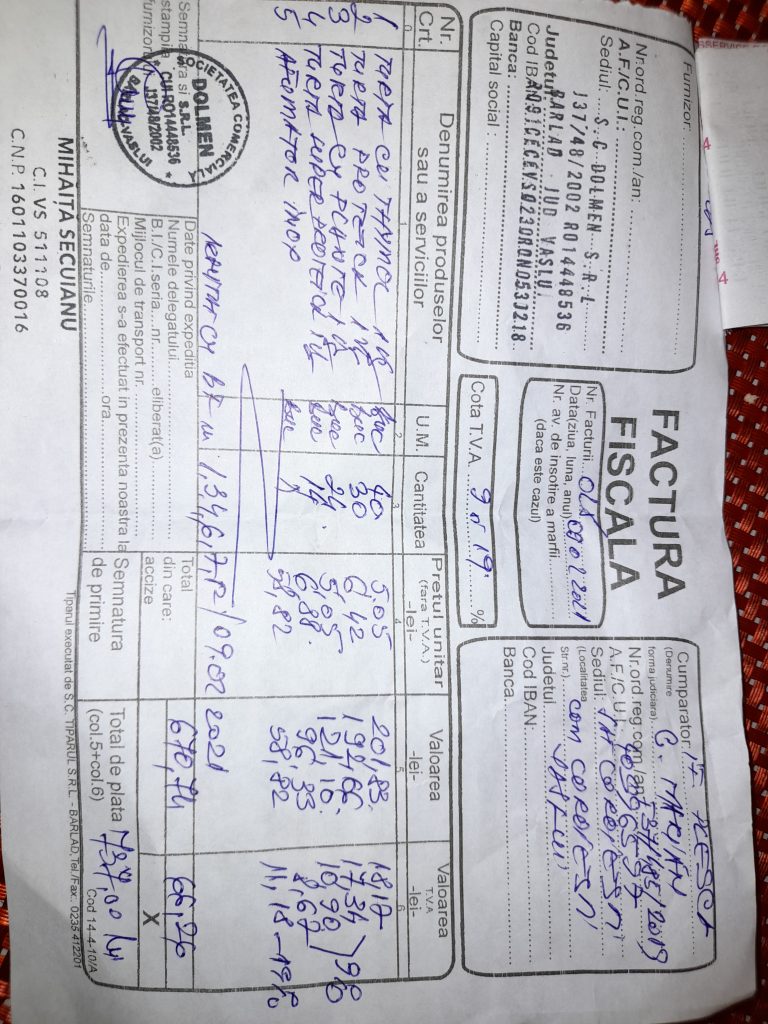 FACTURA
FISCALA
Furnizor:
S. C DOLMEN S. R. L
Nr.ord.reg.com./an:
J37/48/2002 RO14448536
A.F./C.U.I.:
Sediul:
BARLAD JUD VASLUI
Judetul:
Cod IBAN:
Banca:
Capital social:
Nr. Facturii
Data(ziua, luna, anul) 09 02 2021
Nr. av. de insotire a marfii
(daca este cazul)
Cota T.V.A. 9 si 19 %
Cumparator
(Denumire
forma judiciara)
C. MARIAN
Nr.ord.reg.com/an
A.F./C.U.I.
Sediul: SAT COROIESTI
(Localitatea
Str nr.) COM COROIESTI
Judetul VASLUI
Cod IBAN:
Banca
Nr. Crt. Denumirea produselor sau a serviciilor U.M. Cantitatea Pretul unitar (fara T.V.A.) -lei- Valoarea -lei- Valoarea T.V.A -lei-
0 1 2 3 4 5 6
1 TURTA CU TIMOL 1 KG buc 40 5,05 201,83 18,17
2 TURTA PROTECH 1 KG buc 30 6,42 192,66 17,34
3 TURTA CU PLANTE buc 24 5,05 121,10 10,90
4 TURTA SUPER PROTECH buc 14 6,88 96,33 8,67
5 AFUMATOR INOX buc 1 58,82 58,82 11,18 - 19%
9%
09.02 2021
Semnatura si
stampila
furnizorului
SOCIETATEA COMERCIALA
DOLMEN
S.R.L.
CUI-RO14448536
J37/48/2002
VASLUI
Date privind expeditia
Numele delegatului
B.I./C.I.seria nr. eliberat(a)
Mijlocul de transport nr.
Expedierea s-a efectuat in prezenta noastra la
data de ora
Semnaturile
Total 670,74 66,26
din care:
accize X
Semnatura
de primire
Total de plata
(col.5+col.6)
737,00 lei
Cod 14-4-10/A
Tiparul executat de S.C. TIPARUL S.R.L. - BARLAD,Tel./Fax.: 0235 412201
MIHAIȚA SECUIANU
C.I. VS 511108
C.N.P. 1601103370016